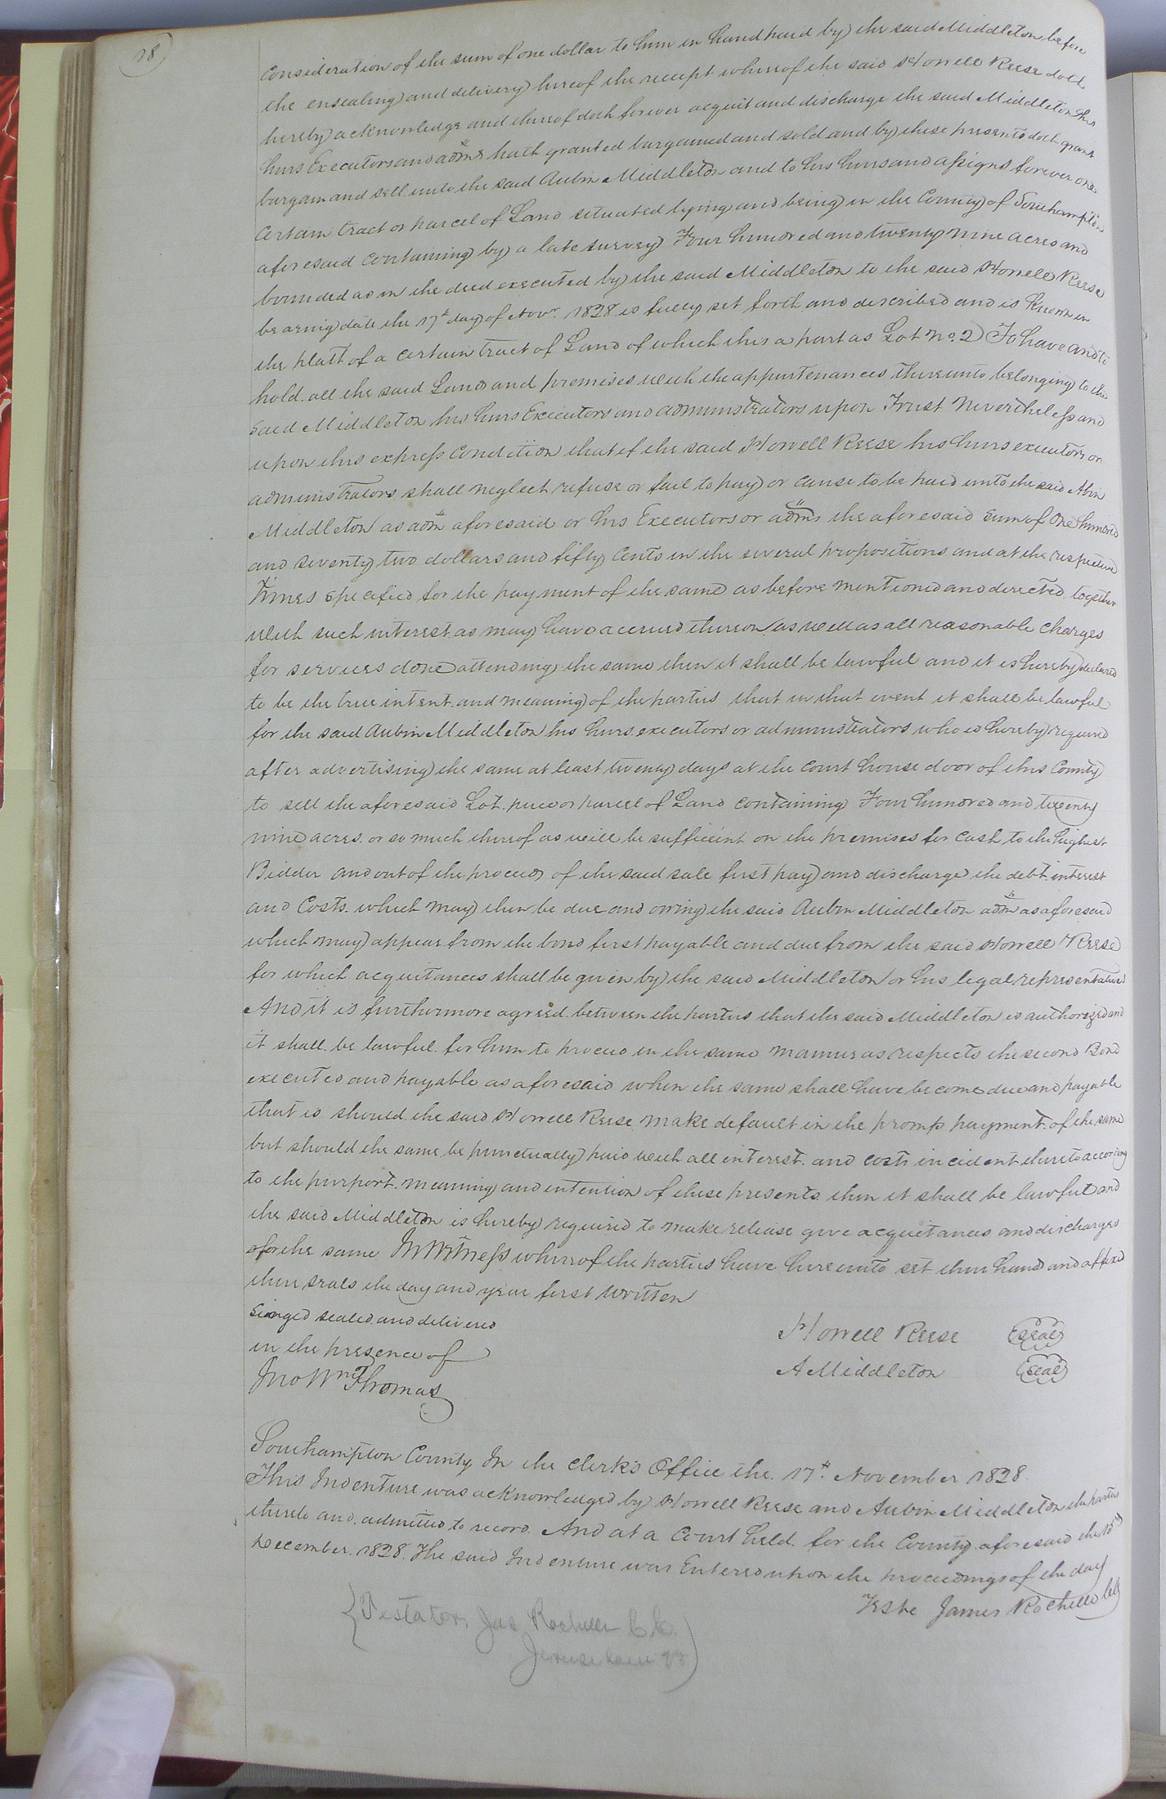 28
Consideration of the sum of one dollar to him in hand paid by the said Middleton before
the ensealing and delivery hereof the receipt whereof the said Howell Reese doth
hereby acknowledge and thereof doth forever acquit and discharge the said Middleton his
heirs Executors and admrs hath granted bargained and sold and by these presents doth grant
bargain and sell unto the said Aubin Middleton and to his heirs and assigns forever one
Certain tract or parcel of Land situated lying and being in the County of Southampton
aforesaid containing by a late survey Four hundred and twenty nine acres and
bounded as in the deed executed by the said Middleton to the said Howell Reese
bearing date the 17th day of Novr. 1828 is fully set forth and described and is known in
the platt of a certain tract of Land of which this a part as Lot No. 2) To have and to
hold all the said Land and premises with the appurtenances thereunto belonging to the
said Middleton his heirs Executors and administrators upon Trust Nevertheless and
upon this express Condition that if the said Howell Reese his heirs executors or
administrators shall neglect refuse or fail to pay or cause to be paid unto the said Abin
Middleton as adm aforesaid or his Executors or adms the aforesaid sum of One hundred
and seventy two dollars and fifty Cents in the several propositions and at the respective
Times specified for the payment of the same as before mentioned and directed together
with such interest as may have accrued thereon as well as all reasonable charges
for services done attending the same then it shall be lawful and it is hereby declared
to be the true intent and meaning of the parties that in that event it shall be lawful
for the said Aubin Middleton his heirs executors or administrators who is hereby required
after advertising the same at least twenty days at the Court house door of this County
to sell the aforesaid Lot piece or parcel of Land containing Four hundred and twenty
nine acres or so much thereof as will be sufficient on the premises for Cash to the highest
Bidder and out of the proceeds of the said sale first pay and discharge the debt interest
and Costs which may then be due and owing the said Aubin Middleton adm as aforesaid
which may appear from the bond first payable and due from the said Howell Reese
for which acquitances shall be given by the said Middleton or his legal representatives
And it is furthermore agreed between the parties that the said Middleton is authorized and
it shall be lawful for him to proceed in the same manner as respects the second Bond
executed and payable as aforesaid when the same shall have become due and payable
that is should the said Howell Reese make default in the promp payment of the same
but should the same be punctually paid with all interest and costs incident thereto according
to the purport meaning and intention of these presents then it shall be lawful and
the said Middleton is hereby required to make release give acquetances and discharges
for the same In Witness whereof the parties have hereunto set their hand and affixed
their seals the day and year first written
Singed sealed and delivered
in the presence of
Howell Reese (seal)
Jno Wm Thomas
A Middleton (seal)
Southampton County In the Clerk's Office the 17th November 1828
This Indenture was acknowledged by Howell Reese and Aubin Middleton the parties
thereto and admitted to record. And at a Court held for the County aforesaid the 15th
December 1828. The said Indenture was Entered upon the proceedings of the day
Teste James Rochelle
{Testator, Jas Rochelle C.C.
Jerusalem Va)